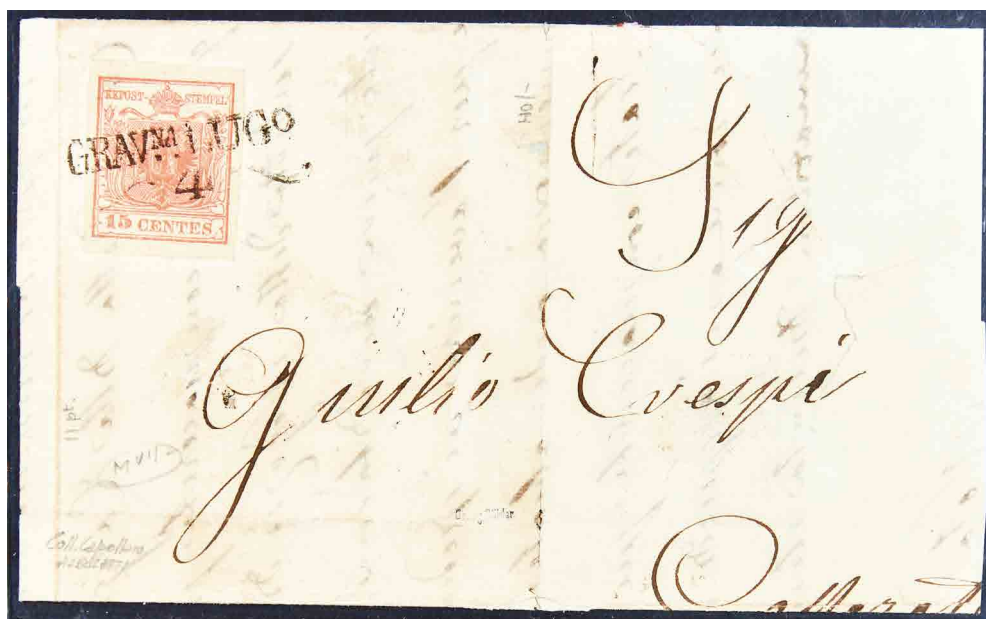 KKPOST-STEMPEL
GRAVNA LUGO
4
15 CENTES
Sig
Giulio Crespi
Gallarat
110/-
11 pt.
M VI/2
Coll. Capellaro